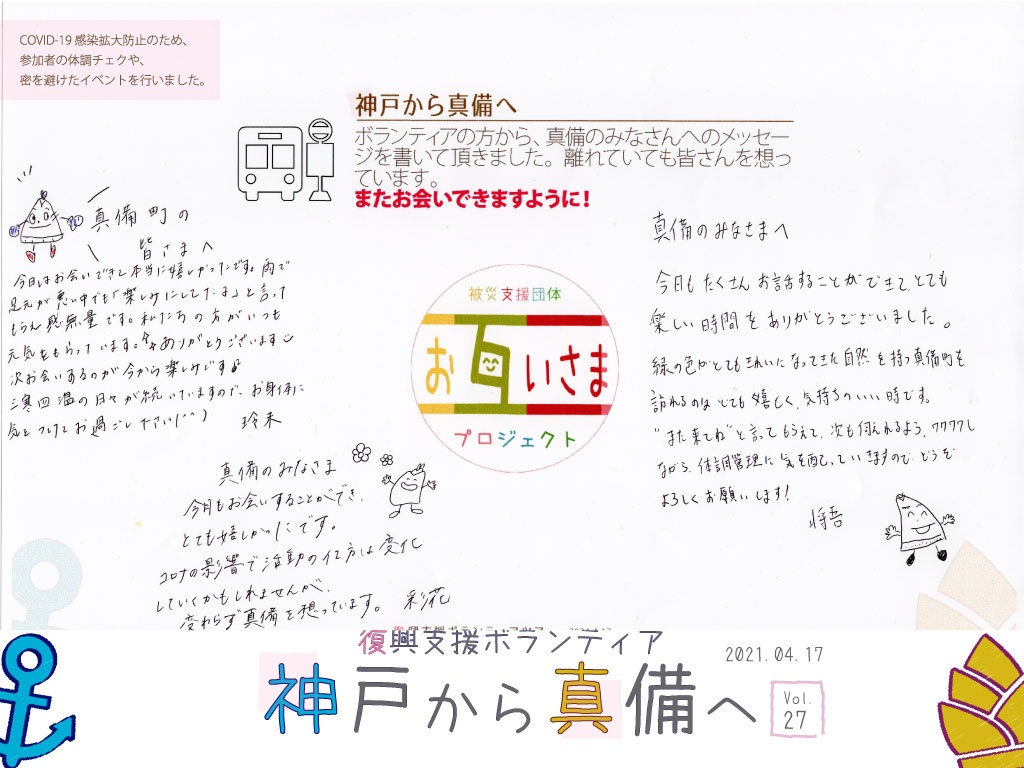 COVID-19 感染拡大防止のため、
参加者の体調チェクや、
密を避けたイベントを行いました。
神戸から真備へ
ボランティアの方から、真備のみなさんへのメッセー
ジを書いて頂きました。離れていても皆さんを想っ
ています。
またお会いできますように!
真備町の
皆さまへ
今日はお会いできて本当に嬉しかったです。雨で
足元が悪い中でも「楽しみにしてたよ」と言って
もらえ感無量です。私たちの方がいつも
元気をもらっています。ありがとうございます
次お会いするのが今から楽しみです
三寒四温の日々が続いていますので、お身体に
気をつけてお過ごし下さい(^^)
玲未
被災支援団体
お互いさま
プロジェクト
真備のみなさまへ
今日もたくさんお話することができて、とても
楽しい時間をありがとうございました。
緑の色がとてもきれいになってきた自然を持つ真備町を
訪れるのはとても嬉しく、気持ちのいい時です。
"また来てね"と言ってもらえて、次も伺えるよう、ワクワクし
ながら、体調管理に気を配っていきますので、どうぞ
よろしくお願いします!
将吾
真備のみなさま
今月もお会いすることができ、
とても嬉しかったです。
コロナの影響で活動の仕方は変化
していくかもしれませんが、
変わらず真備を想っています。 彩花
復興支援ボランティア
2021.04.17
神戸から真備へ
Vol.
27